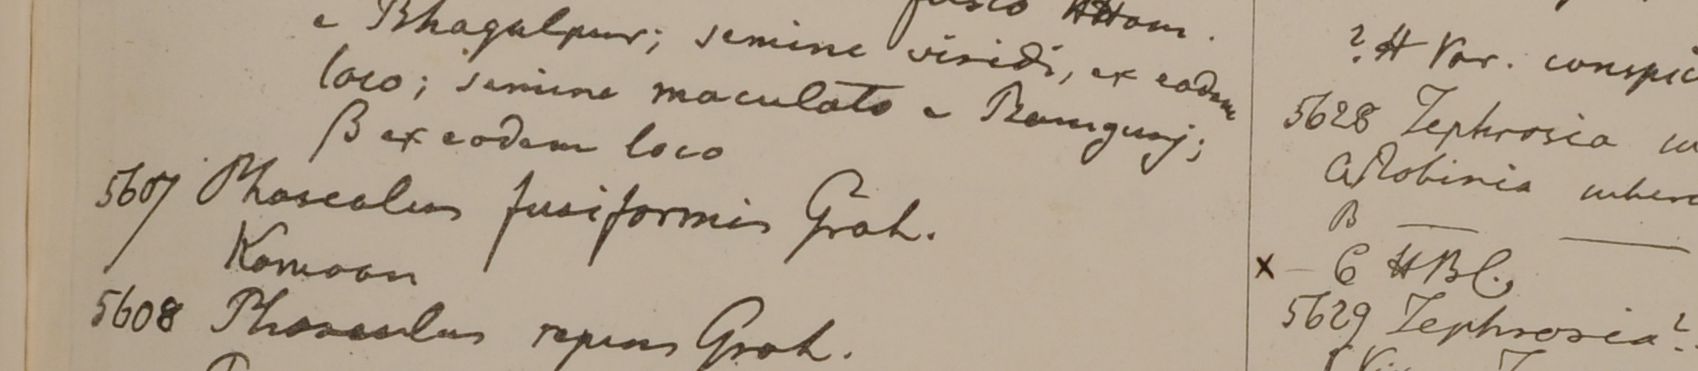 fusco HHam.
e Bhagulpur; semine viridi, ex eodem
loco; semine maculato e Ramgunj;
β ex eodem loco
5607 Phaseolus fusiformis Grah.
Kamaon
5608 Phaseolus repens Grah.
? H Var. conspic
5628 Tephrosia
a Robinia
B
x C HBC.
5629 Tephrosia?